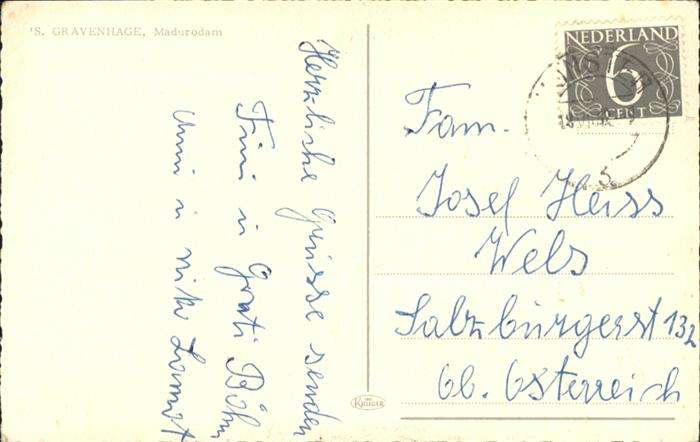 'S. GRAVENHAGE, Madurodam
Herzliche Grüsse senden
Fini u Grati Böhm
u niki
NEDERLAND
6
CENT
5
Fam.
Josef Heiss
Wels
Salzburgerst 132
Ob. Österreich
KRÜGER